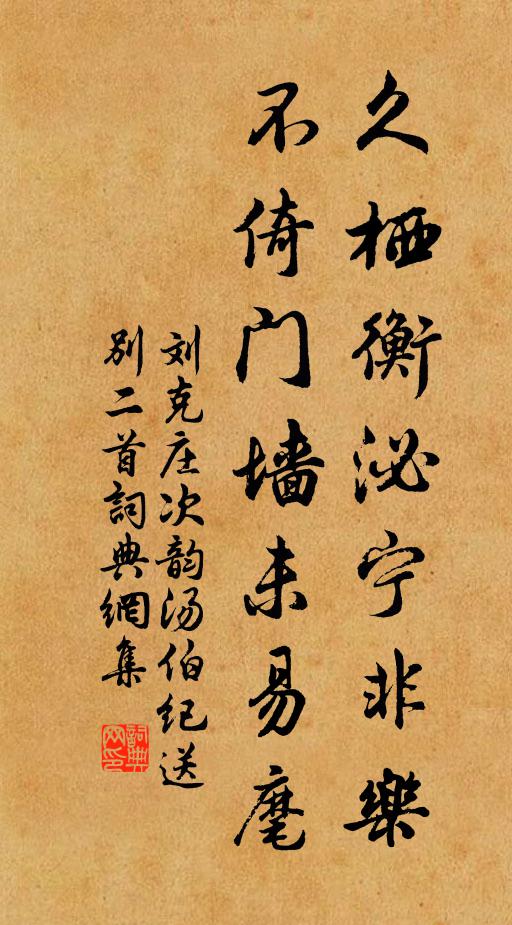 久栖衡泌宁非樂
不倚门墙未易麾
刘克庄次韵汤伯纪送
别二首詞典網集
詞典網印